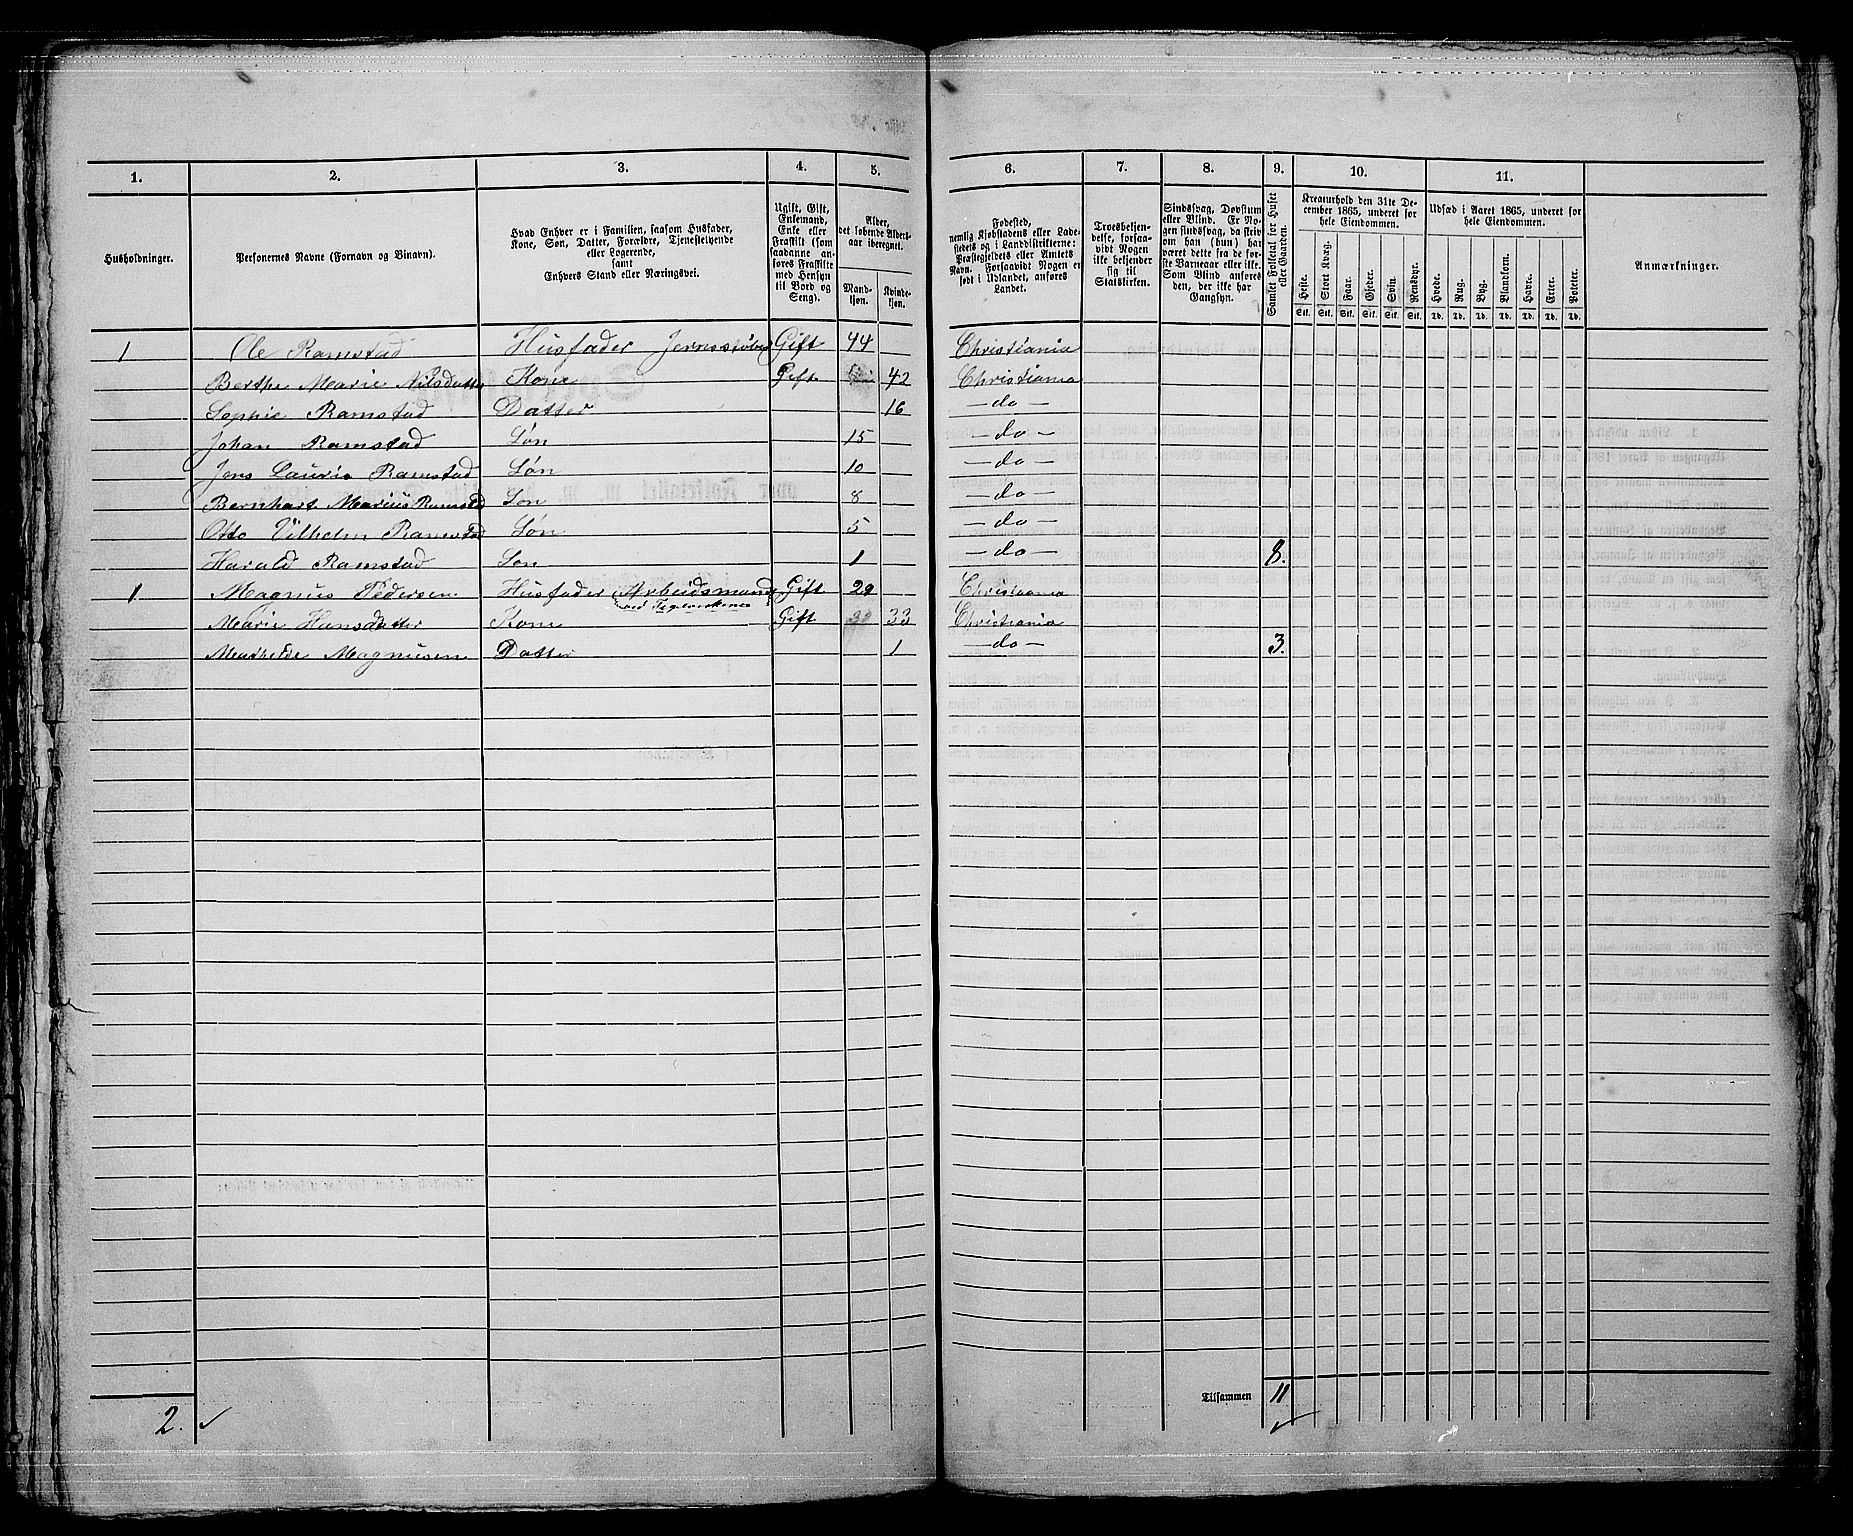 1. 2. 3. 4. 5. 6. 7. 8. 9. 10. 11.
Husholdninger.
Personernes Navne (Fornavn og Binavn).
Hvad Enhver er i Familien, saasom Husfader,
Kone, Søn, Datter, Forældre, Tjenestetyende
eller Logerende,
samt
Enhvers Stand eller Næringsvei.
Ugift, Gift,
Enkemand,
Enke eller
Fraskilt (som
saadanne an-
føres Fraskilte
med Hensyn
til Bord og
Seng).
Alder,
det løbende Alders-
aar iberegnet.
Mand-
kjøn.
Kvinde-
kjøn.
Fødested,
nemlig Kjøbstadens eller Lade-
stedets og i Landdistrikterne:
Præstegjeldets eller Amtets
Navn. Forsaavidt Nogen er
født i Udlandet, anføres
Landet.
Troesbekjen-
delse, forsaa-
vidt Nogen
ikke bekjender
sig til
Statskirken.
Sindssvag, Døvstum
eller Blind. Er No-
gen sindssvag, da skriv
om han (hun) har
været dette fra de før-
ste Barneaar eller ikke.
Som Blind anføres
den, der ikke har
Gangsyn.
Samlet Folketal for Huset
eller Gaarden.
Kreaturhold den 31te De-
cember 1865, underet for
hele Eiendommen.
Heste. Stort Kvæg. Faar. Gjeder. Svin. Rensdyr.
Stk. Stk. Stk. Stk. Stk. Stk.
Udsæd i Aaret 1865, underet for
hele Eiendommen.
Hvede. Rug. Byg. Blandkorn. Havre. Erter. Poteter.
Td. Td. Td. Td. Td. Td. Td.
Anmærkninger.
1 Ole Ramstad Husfader Jernstøber Gift 44 Christiania
Berthe Marie Nilsdatter Kone Gift 42 Christiania
Sophie Ramstad Datter 16 — do —
Johan Ramstad Søn 15 — do —
Jens Lauris Ramstad Søn 10 — do —
Bernhart Marius Ramstad Søn 8 — do —
Otto Vilhelm Ramstad Søn 5 — do —
Harald Ramstad Søn 1 — do — 8.
1. Magnus Pedersen Husfader Arbeidsmand Gift 29 Christiania
ved Teglverkenes
Marie Hansdatter Kone Gift 33 Christiania
Mathelde Magnusen Datter 1 — do — 3.
Tilsammen 11
2.